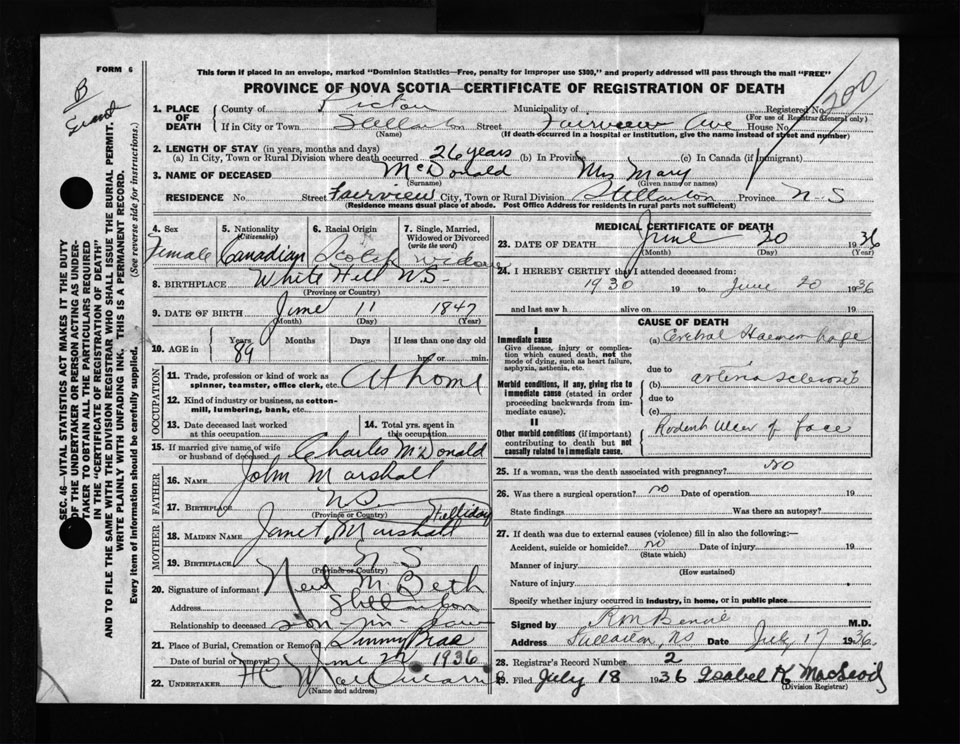 FORM 6
This form if placed in an envelope, marked "Dominion Statistics—Free, penalty for improper use $300," and properly addressed will pass through the mail "FREE"
PROVINCE OF NOVA SCOTIA—CERTIFICATE OF REGISTRATION OF DEATH
B
Grand
200
1. PLACE OF DEATH
County of Pictou Municipality of Registered No.
(For use of Registrar General only)
If in City or Town Stellarton Street Fairview Ave House No.
(Name) (If death occurred in a hospital or institution, give the name instead of street and number)
2. LENGTH OF STAY (in years, months and days)
(a) In City, Town or Rural Division where death occurred 26 years (b) In Province (c) In Canada (if immigrant)
3. NAME OF DECEASED McDonald Mrs Mary
(Surname) (Given name or names)
RESIDENCE No. Street Fairview City, Town or Rural Division Stellarton Province N-S
(Residence means usual place of abode. Post Office Address for residents in rural parts not sufficient)
4. Sex 5. Nationality (Citizenship) 6. Racial Origin 7. Single, Married, Widowed or Divorced (write the word)
Female Canadian Scotch widow
8. BIRTHPLACE White Hill N.S-
(Province or Country)
9. DATE OF BIRTH June 11 1847
(Month) (Day) (Year)
10. AGE in Years Months Days If less than one day old
89 hrs. or min.
OCCUPATION
11. Trade, profession or kind of work as spinner, teamster, office clerk, etc. At home
12. Kind of industry or business, as cotton-mill, lumbering, bank, etc.
13. Date deceased last worked at this occupation 14. Total yrs. spent in this occupation
15. If married give name of wife or husband of deceased Charles McDonald
FATHER
16. NAME John Marshall
17. Birthplace N S
(Province or Country)
MOTHER
Halliday
18. MAIDEN NAME Janet Marshall
19. BIRTHPLACE N S
(Province or Country)
20. Signature of informant Neil McBeth
Address Stellarton
Relationship to deceased son-in-law
21. Place of Burial, Cremation or Removal
Date of burial or removal June 22 1936
22. UNDERTAKER
(Name and address)
MEDICAL CERTIFICATE OF DEATH
23. DATE OF DEATH June 20 1936
(Month) (Day) (Year)
24. I HEREBY CERTIFY that I attended deceased from:
1930 19 to June 20 1936
and last saw h alive on 19
CAUSE OF DEATH
I
Immediate cause
Give disease, injury or complication which caused death, not the mode of dying, such as heart failure, asphyxia, asthenia, etc.
(a) Cerebral Haemorrhage
due to
Morbid conditions, if any, giving rise to immediate cause (stated in order proceeding backwards from immediate cause).
(b) arteriosclerosis
due to
(c)
II
Other morbid conditions (if important) contributing to death but not causally related to immediate cause.
Rodent Ulcer of face
25. If a woman, was the death associated with pregnancy? NO
26. Was there a surgical operation? no Date of operation 19
State findings Was there an autopsy?
27. If death was due to external causes (violence) fill in also the following:—
Accident, suicide or homicide? no Date of injury 19
(State which)
Manner of injury
(How sustained)
Nature of injury
Specify whether injury occurred in industry, in home, or in public place
Signed by M.D.
Address Stellarton, NS Date July 17 1936
28. Registrar's Record Number 2
29. Filed July 18 1936 Isabel K MacLeod
(Division Registrar)
SEC. 46—VITAL STATISTICS ACT MAKES IT THE DUTY
OF THE UNDERTAKER OR PERSON ACTING AS UNDER-
TAKER TO OBTAIN ALL THE PARTICULARS REQUIRED
IN THE "CERTIFICATE OF REGISTRATION OF DEATH"
AND TO FILE THE SAME WITH THE DIVISION REGISTRAR WHO SHALL ISSUE THE BURIAL PERMIT.
WRITE PLAINLY WITH UNFADING INK. THIS IS A PERMANENT RECORD.
Every item of information should be carefully supplied. (See reverse side for instructions.)